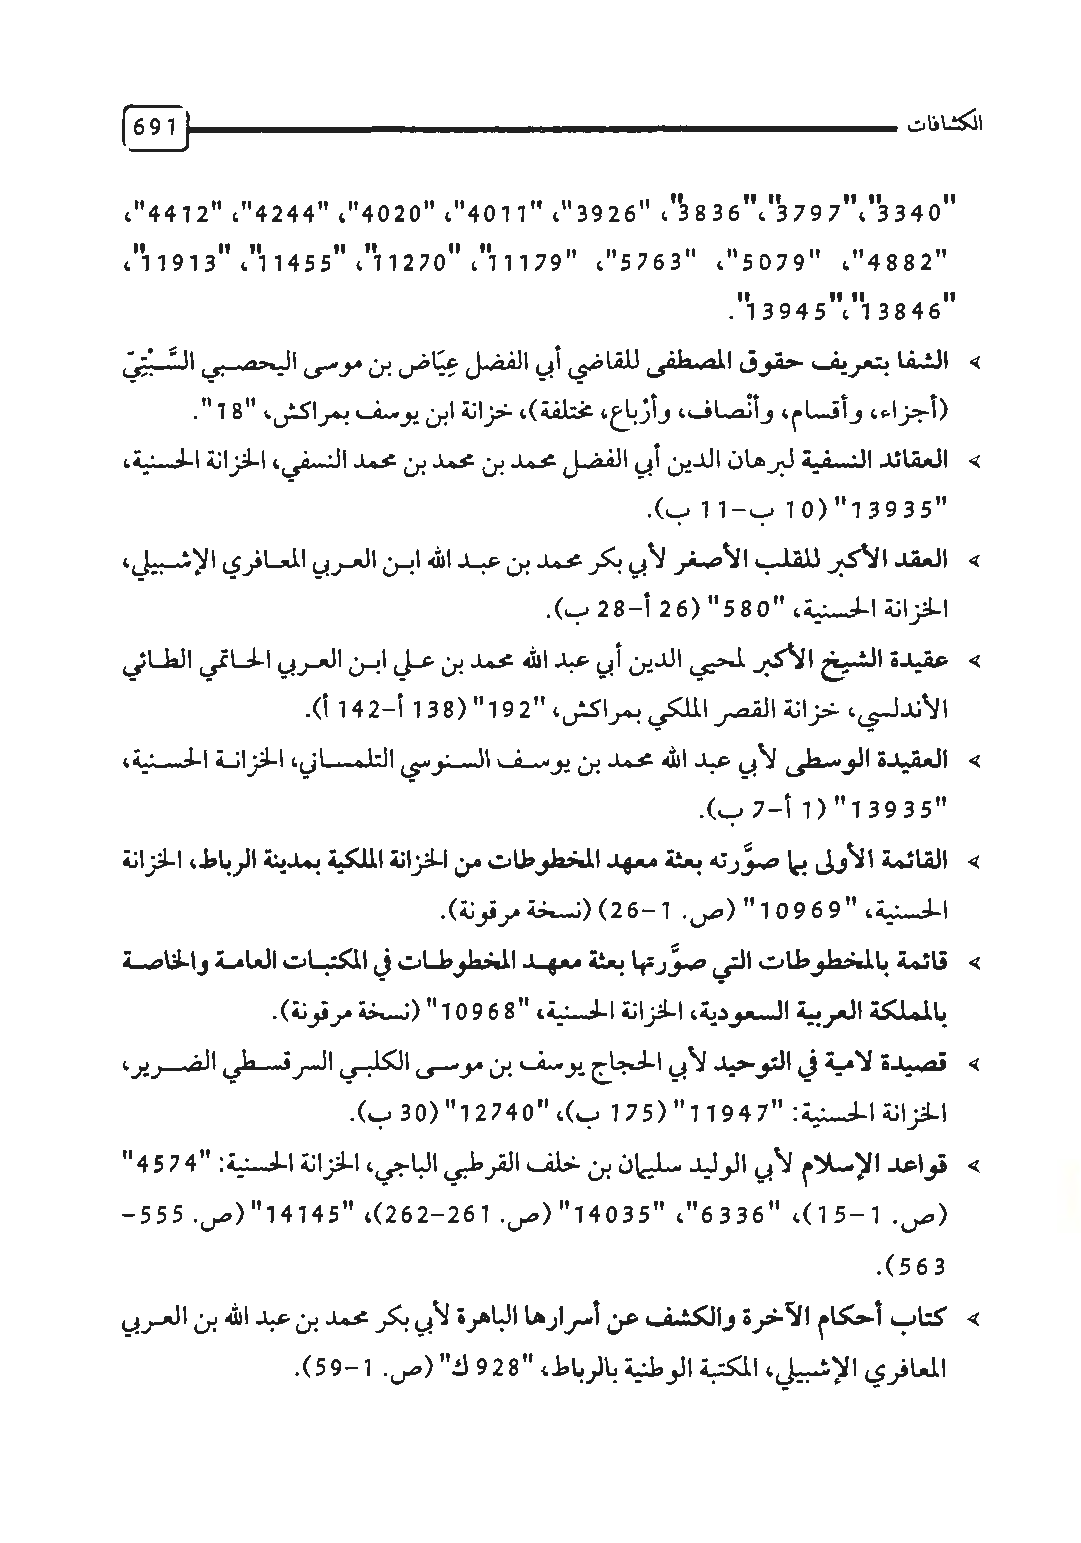 الكشافات 691
"3340"، "3797"، "3836"، "3926"، "4011"، "4020"، "4244"، "4412"،
"4882"، "5079"، "5763"، "11179"، "11270"، "11455"، "11913"،
"13846"، "13945".
➢ الشفا بتعريف حقوق المصطفى للقاضي أبي الفضل عِيَاض بن موسى اليحصبي السَّبْتِيّ
(أجزاء، وأقسام، وأنْصاف، وأرْباع، مختلفة)، خزانة ابن يوسف بمراكش، "18".
➢ العقائد النسفية لبرهان الدين أبي الفضل محمد بن محمد بن محمد النسفي، الخزانة الحسنية،
"13935" (10 ب-11 ب).
➢ العقد الأكبر للقلب الأصغر لأبي بكر محمد بن عبد الله ابن العربي المعافري الإشبيلي،
الخزانة الحسنية، "580" (26 أ-28 ب).
➢ عقيدة الشيخ الأكبر لمحيي الدين أبي عبد الله محمد بن علي ابن العربي الحاتمي الطائي
الأندلسي، خزانة القصر الملكي بمراكش، "192" (138 أ-142 أ).
➢ العقيدة الوسطى لأبي عبد الله محمد بن يوسف السنوسي التلمساني، الخزانة الحسنية،
"13935" (1 أ-7 ب).
➢ القائمة الأولى بما صوَّرته بعثة معهد المخطوطات من الخزانة الملكية بمدينة الرباط، الخزانة
الحسنية، "10969" (ص. 1-26) (نسخة مرقونة).
➢ قائمة بالمخطوطات التي صوَّرتها بعثة معهد المخطوطات في المكتبات العامة والخاصة
بالمملكة العربية السعودية، الخزانة الحسنية، "10968" (نسخة مرقونة).
➢ قصيدة لامية في التوحيد لأبي الحجاج يوسف بن موسى الكلبي السرقسطي الضرير،
الخزانة الحسنية: "11947" (175 ب)، "12740" (30 ب).
➢ قواعد الإسلام لأبي الوليد سليمان بن خلف القرطبي الباجي، الخزانة الحسنية: "4574"
(ص. 1-15)، "6336"، "14035" (ص. 261-262)، "14145" (ص. 555-
563).
➢ كتاب أحكام الآخرة والكشف عن أسرارها الباهرة لأبي بكر محمد بن عبد الله بن العربي
المعافري الإشبيلي، المكتبة الوطنية بالرباط، "928 ك" (ص. 1-59).